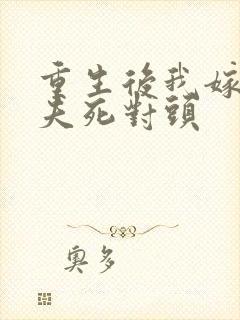 重生後我嫁
夫死對頭
奧多